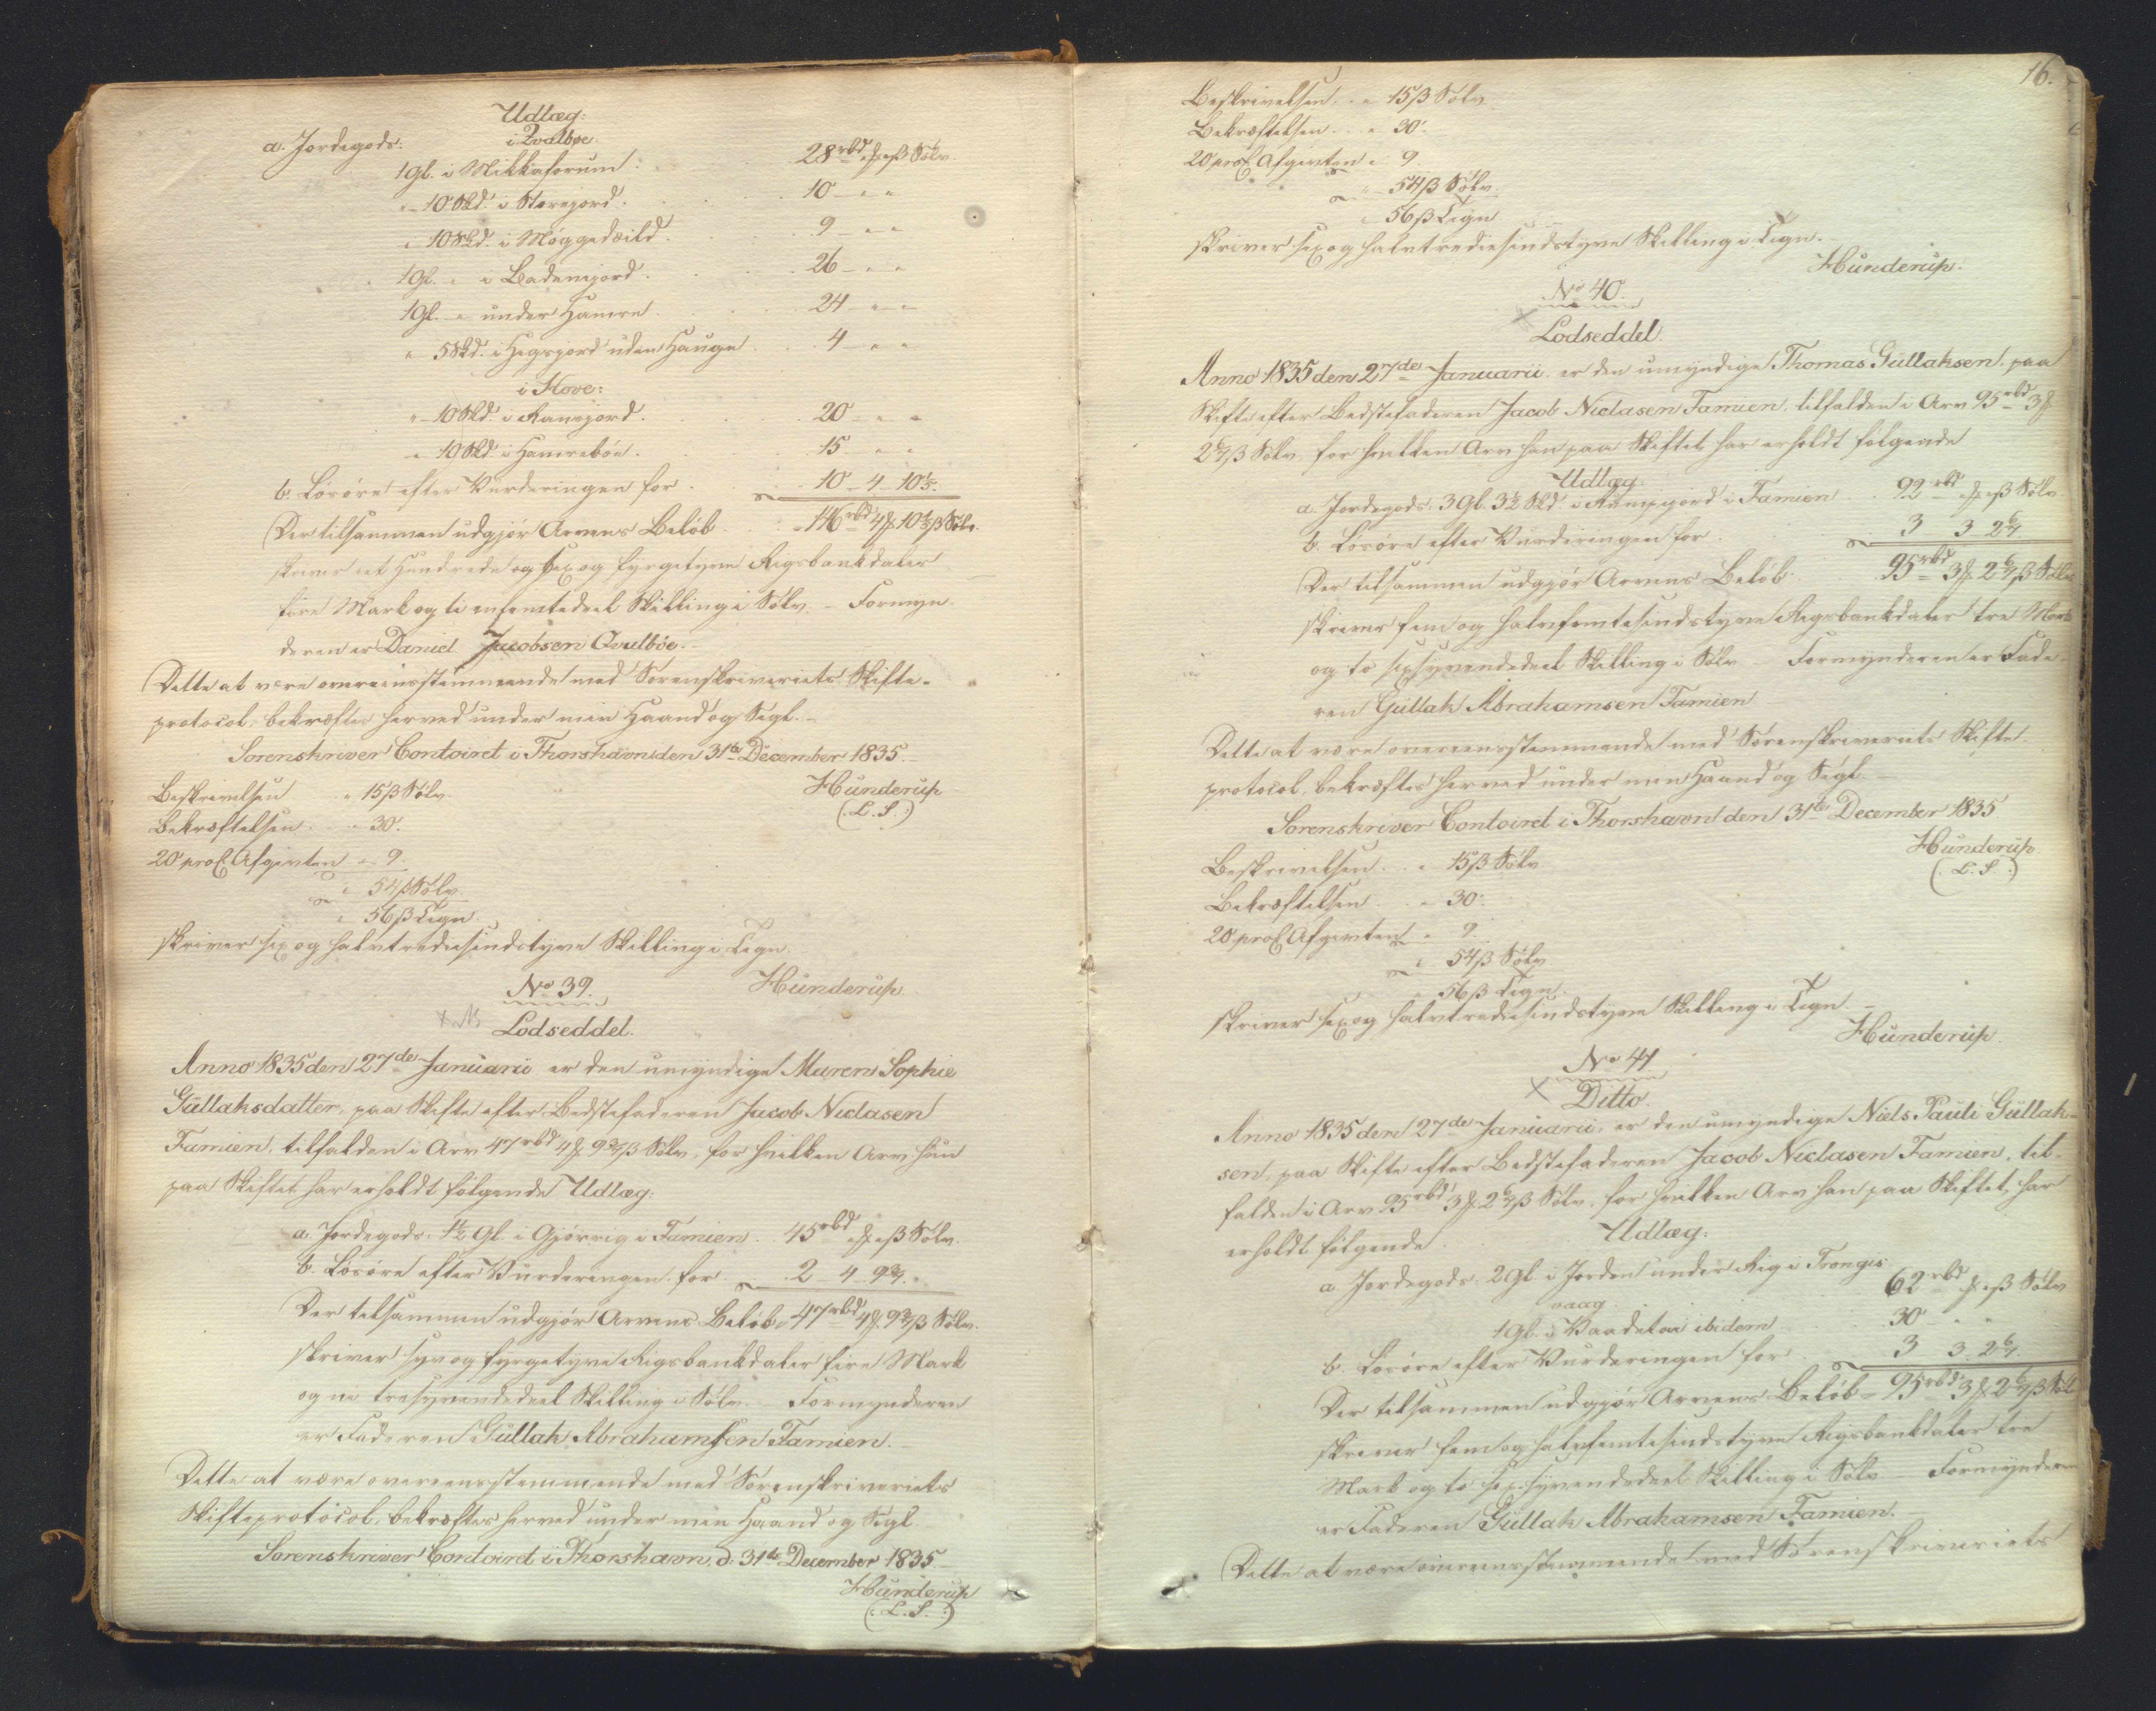 Udlæg:
a. Jordegods: i Qvalböe.
1 Gl. i Mikkaforum 28 rbd „ „ ß Sölv.
„ 10 Skd. i Storejord. 10 „ „
„ 10 Skd. i Möggedeild. 9 „ „
1 Gl. „ i Badenjord. 26 „ „
1 Gl. „ under Hamren. 24 „ „
„ 5 Skd. i Hegnjord uden Haugen 4 „ „
i Hove:
„ 10 Skd. i Ransjord. 20 „ „
„ 10 Skd. i Hamreböen. 15 „ „
b. Lösöre efter Vurderingen for 10 4 10 1/5.
Der tilsammen udgjör Arvens Belöb 146 rbd 4 ₻ 10 1/5 ß Sölv.
skriver eet Hundrede og sex og fyrgetyve Rigsbankdaler
fire Mark og ti en femtedeel Skilling i Sölv. – Formyn-
deren er Daniel Jacobsen Qvalböe. –
Dette at være overeensstemmende med Sorenskriveriets Skifte-
protocol, bekræftes herved under min Haand og Segl. –
Sorenskriver Contoiret i Thorshavn den 31te December 1835. –
Hunderup
(: L. S. :)
Beskrivelsen „ 15 ß Sölv.
Bekræftelsen „ 30.
20 proC. Afgivten „ 9.
„ 54 ß Sölv.
„ 56 ß Tegn.
skriver sex og halvtrediesindstyve Skilling i Tegn.
Hunderup.
No 39.
Lodseddel.
Anno 1835 den 27de Januarii er den umyndige Maren Sophie
Gullaksdatter, paa Skifte efter Bedstefaderen Jacob Niclasen
Famien, tilfalden i Arv 47 rbd 4 ₻ 9 3/7 ß Sölv, for hvilken Arv hun
paa Skiftet har erholdt fölgende Udlæg:
a. Jordegods: 1 1/2 Gl. i Gjörrig i Famien. 45 rbd „ ₻ „ ß Sölv.
b. Lösöre efter Vurderingen for 2 4 9 3/7.
Der tilsammen udgjör Arvens Belöb 47 rbd 4 ₻ 9 3/7 ß Sölv.
skriver syv og fyrgetyve Rigsbankdaler fire Mark
og ni tresyvendedeel Skilling i Sölv. Formynderen
er Faderen Gullak Abrahamsen Famien. –
Dette at være overeensstemmende med Sorenskriveriets
Skifteprotocol, bekræftes herved under min Haand og Segl
Sorenskriver Contoiret i Thorshavn, d. 31te December 1835
Hunderup
(: L. S. :)
16.
Beskrivelsen „ 15 ß Sölv
Bekræftelsen „ 30.
20 proC. Afgivten „ 9.
„ 54 ß Sölv.
„ 56 ß Tegn
skriver sex og halvtrediesindstyve Skilling i Tegn.
Hunderup.
No 40.
Lodseddel.
Anno 1835 den 27de Januarii er den umyndige Thomas Gullaksen, paa
Skifte efter Bedstefaderen Jacob Niclasen Famien, tilfalden i Arv 95 rbd 3 ₻
2 6/7 ß Sölv, for hvilken Arv han paa Skiftet har erholdt fölgende
Udlæg:
a. Jordegods: 3 Gl. 3 1/2 Skd. i Rumpjord i Famien 92 rbd „ ₻ „ ß Sölv.
b. Lösöre efter Vurderingen for 3 3 2 6/7.
Der tilsammen udgjör Arvens Belöb 95 rbd 3 ₻ 2 6/7 ß Sölv
skriver fem og halvfemtesindstyve Rigsbankdaler tre Mark
og to sexsyvendedeel Skilling i Sölv Formynderen er Fade-
ren Gullak Abrahamsen Famien
Dette at være overeensstemmende med Sorenskriveriets Skifte-
protocol, bekræftes herved under min Haand og Segl. –
Sorenskriver Contoiret i Thorshavn den 31te December 1835
Hunderup.
(: L. S. :)
Beskrivelsen „ 15 ß Sölv
Bekræftelsen „ 30.
20 proC. Afgivten „ 9.
„ 54 ß Sölv
„ 56 ß Tegn.
skriver sex og halvtrediesindstyve Skilling i Tegn. –
Hunderup.
No 41
Ditto.
Anno 1835 den 27de Januarii, er den umyndige Niels Pauli Gullak-
sen, paa Skifte efter Bedstefaderen Jacob Niclasen Famien, til-
falden i Arv 95 rbd 3 ₻ 2 6/7 ß Sölv, for hvilken Arv han paa Skiftet har
erholdt fölgende Udlæg:
a. Jordegods: 2 Gl. i Jorden under Rig i Trongis-
vaag 62 rbd „ ₻ „ ß Sölv
1 Gl. i ibidem 30 „ „
b. Lösöre efter Vurderingen for 3 3 2 6/7.
Der tilsammen udgjör Arvens Belöb 95 rbd 3 ₻ 2 6/7 ß Söl
skriver fem og halvfemtesindstyve Rigsbankdaler tre
Mark og to sexsyvendedeel Skilling i Sölv Formynderen
er Faderen Gullak Abrahamsen Famien. –
Dette at være overeensstemmende med Sorenskriveriets